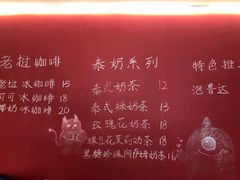 老挝咖啡
老挝冰咖啡 15
可可冰咖啡 18
椰奶冰咖啡 20
泰奶系列
泰式奶茶 12
泰式绿奶茶 13
玫瑰花奶茶 18
蝶豆花茉莉奶茶 18
黑糖珍珠阿萨姆奶茶 16
特色推
泡鲁达